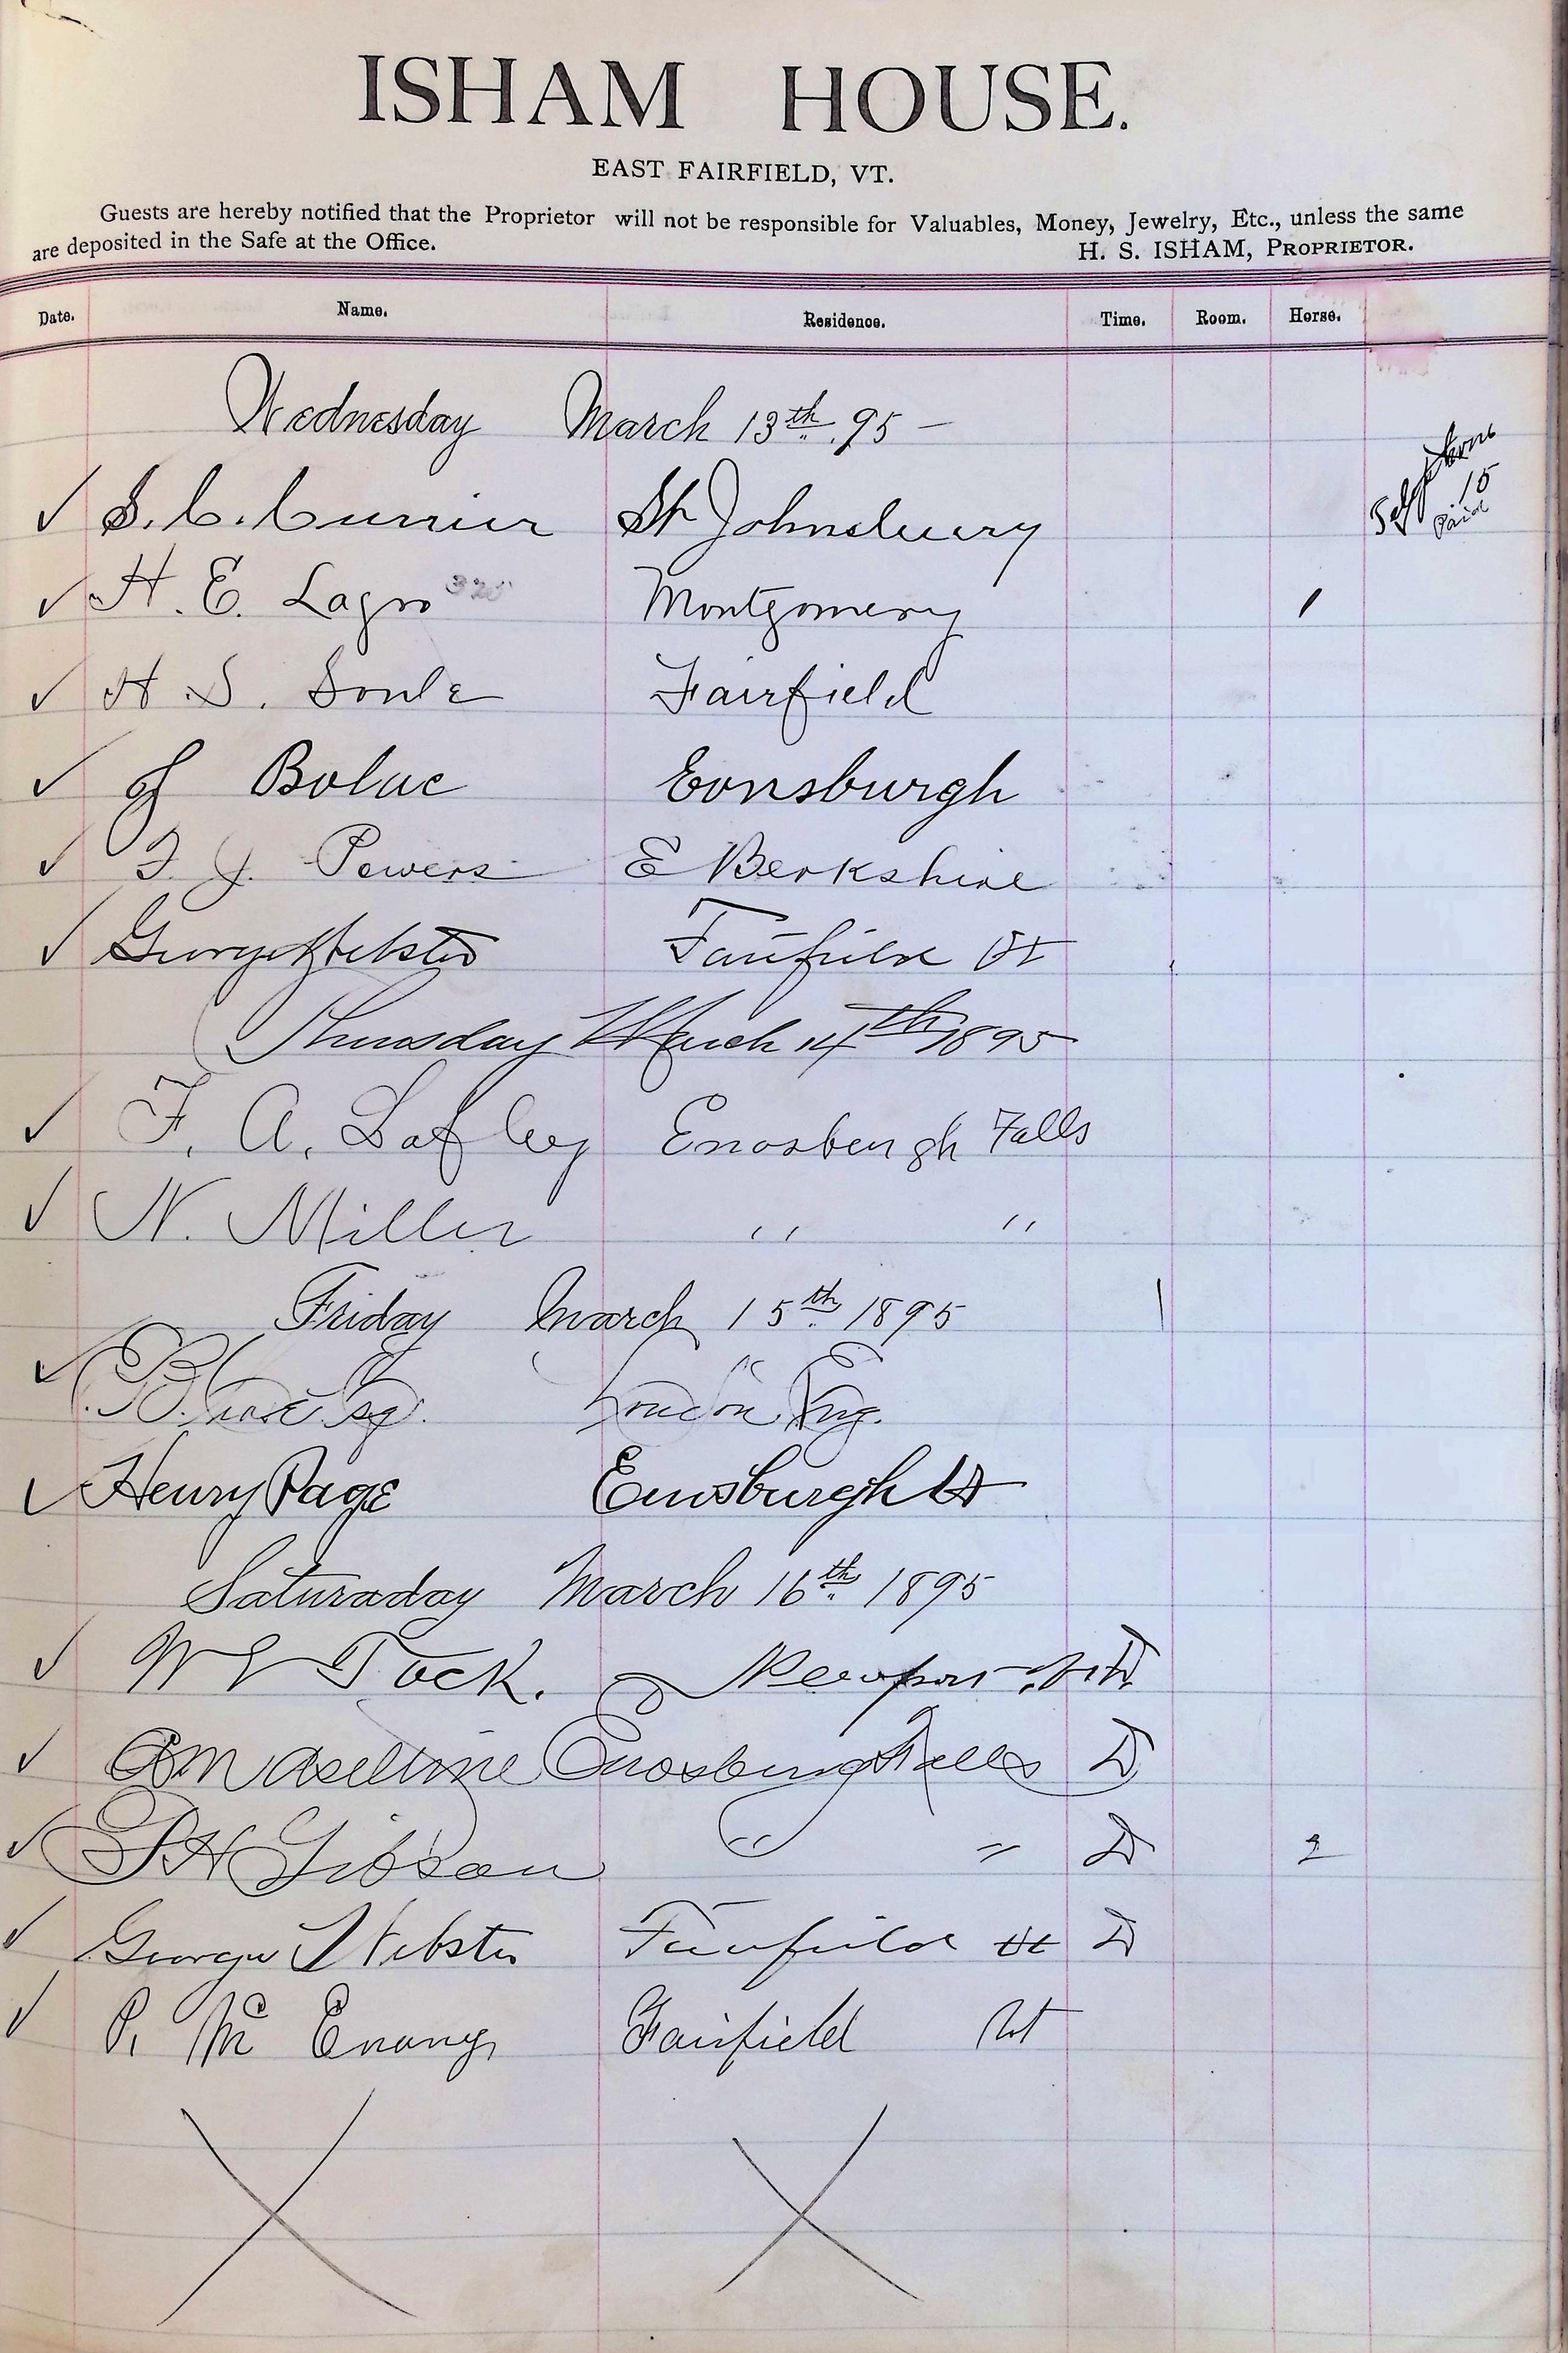 ISHAM HOUSE.
EAST FAIRFIELD, VT.
Guests are hereby notified that the Proprietor will not be responsible for Valuables, Money, Jewelry, Etc., unless the same
are deposited in the Safe at the Office. H. S. ISHAM, PROPRIETOR.
Date. Name. Residence. Time. Room. Horse.
Wednesday March 13th. 95 –
✓ S. C. Currier St Johnsbury 15 Paid
✓ H. E. Lagro 320 Montgomery 1
✓ H. S. Soule Fairfield
✓ of Boluc Eonsburgh
✓ F. J. Powers E Berkshire
✓ George Webster Fairfield Vt
Thursday March 14th 1895
✓ F. A. Lafley Enosburgh Falls
✓ N. Miller " "
Friday March 15th 1895
✓ London Eng.
✓ Henry Page Enosburgh Vt
Saturaday March 16th 1895
✓ Tock. Newport D
✓ Aseltine Enosburgh Falls D
✓ Gibson " " D 2
✓ George Webster Fairfield Vt D
✓ P. Mc Enany Fairfield Vt
X X